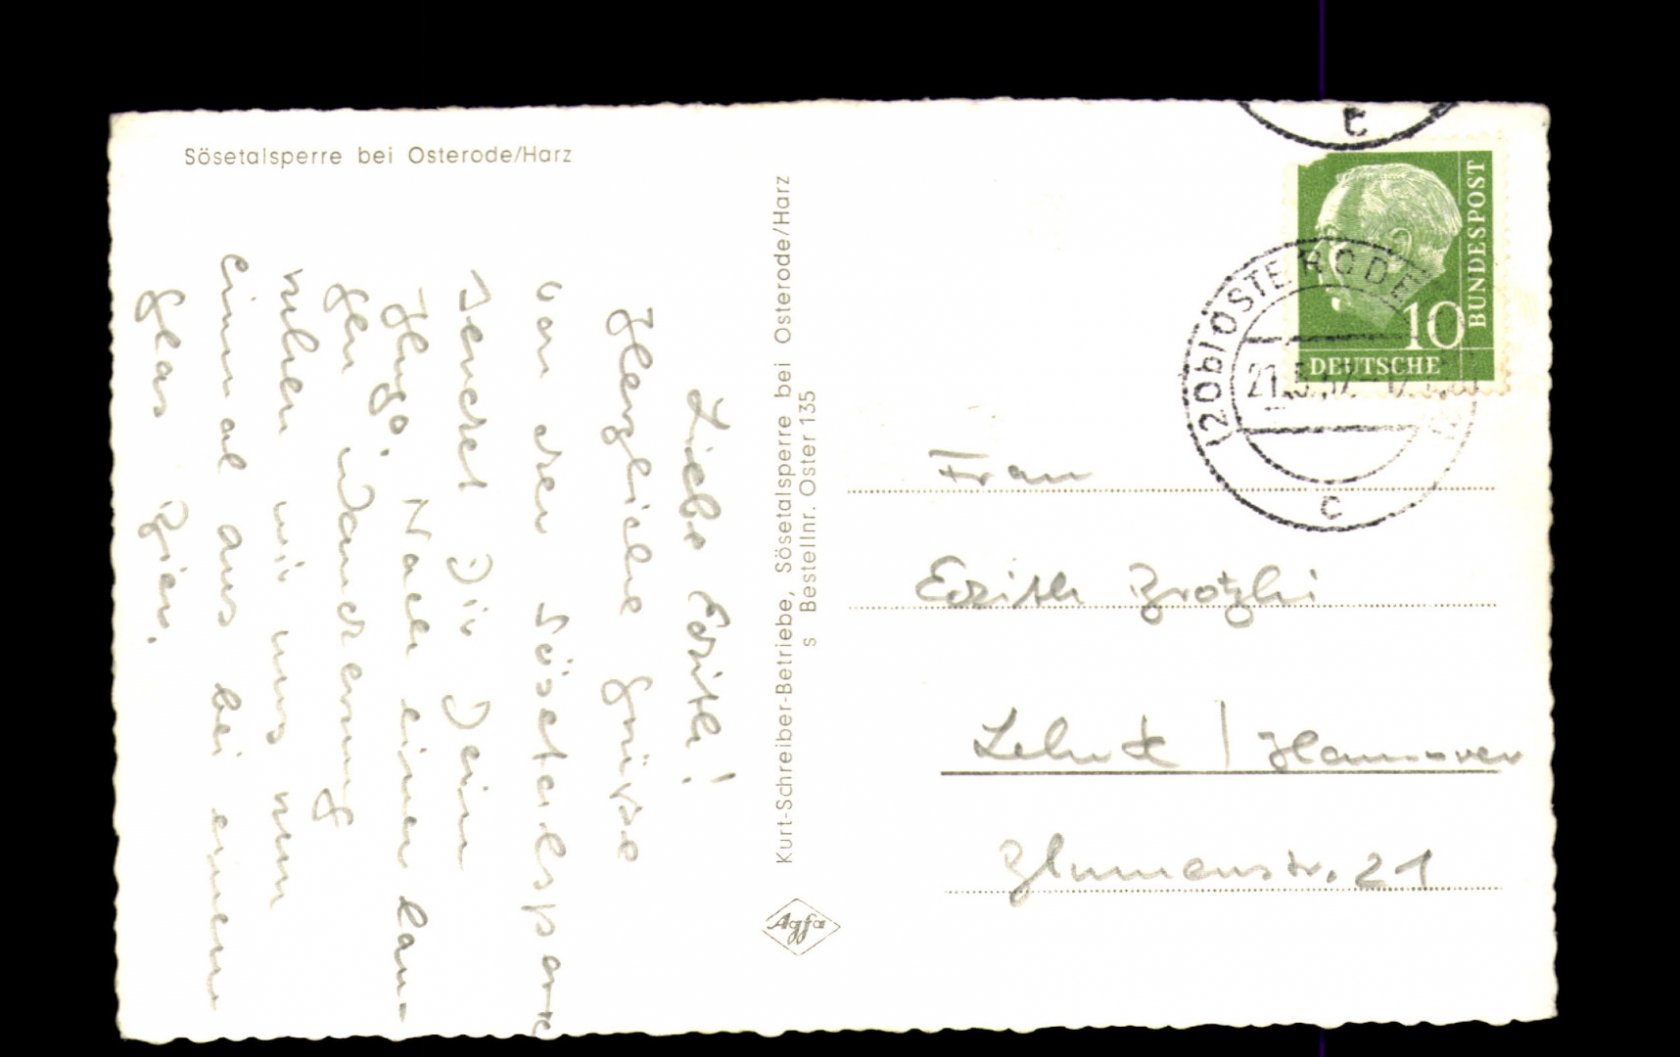 Sösetalsperre bei Osterode/Harz
Liebe Edith!
Herzliche Grüße
von der Sösetalsperre
sendet Dir Dein
Hugo. Nach einer lan-
gen Wanderung
ruhen wir uns nun
einmal aus bei einem
Glas Bier.
Kurt-Schreiber-Betriebe, Sösetalsperre bei Osterode/Harz
s Bestellnr. Oster 135
Agfa
c
BUNDESPOST
10
DEUTSCHE
(20b) OSTERODE
21.5.
c
Frau
Edith
Hannover
Blumenstr. 21